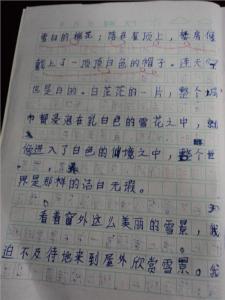 雪白的棉花；落在屋顶上，给房屋
戴上了一顶顶白色的帽子。连天
也是白的。白茫茫的一片，整个城
市都浸泡在乳白色的雪花之中，
进入了白色的仙境之中，整个世
界是那样的洁白无瑕。
看着窗外这么美丽的雪景，我
迫不及待地来到屋外欣赏雪景。我